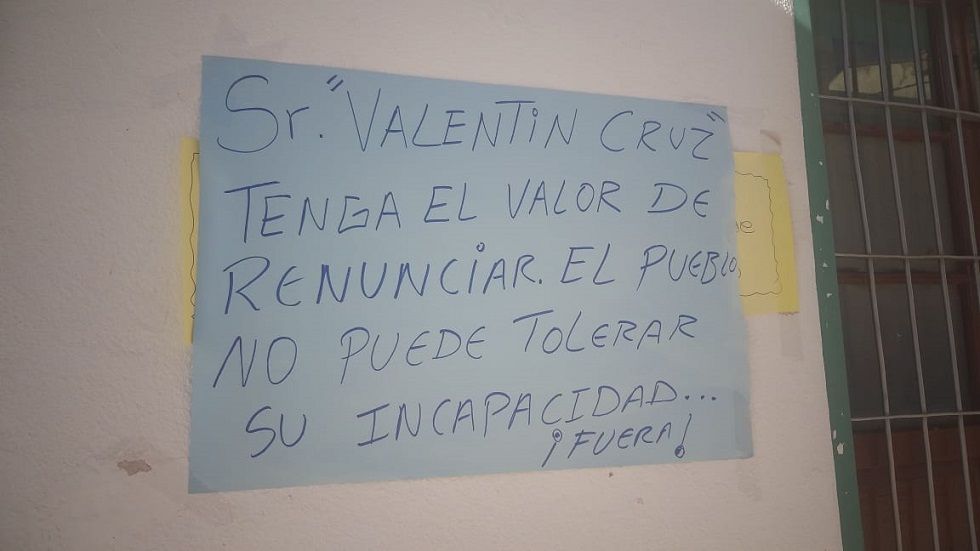 Sr. "VALENTIN CRUZ"
TENGA EL VALOR DE
RENUNCIAR. EL PUEBLO,
NO PUEDE TOLERAR
SU INCAPACIDAD...
¡FUERA!